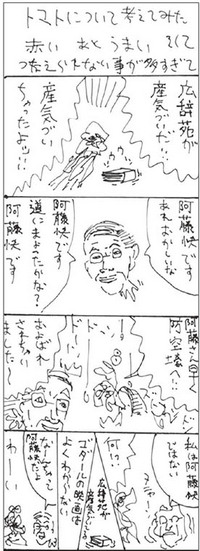 トマトについて考えてみた
赤い あと うまい そして
つたえられない事が多すぎて
広辞苑が
産気づいた…
産気づい
ちゃったよッ!!
ウウ…
阿藤快です
あれおかしいな
阿藤快です
道にまよたかな?
阿藤快です
阿藤さん早く
防空壕へ!!
ドドド…
およばれ
されちゃい
ました〜
私は阿藤快
ではない
何!?
広辞苑が
産気づいた
ゴダールの映画は
よくわからない
なーんちゃって
阿藤快だよ
わーい